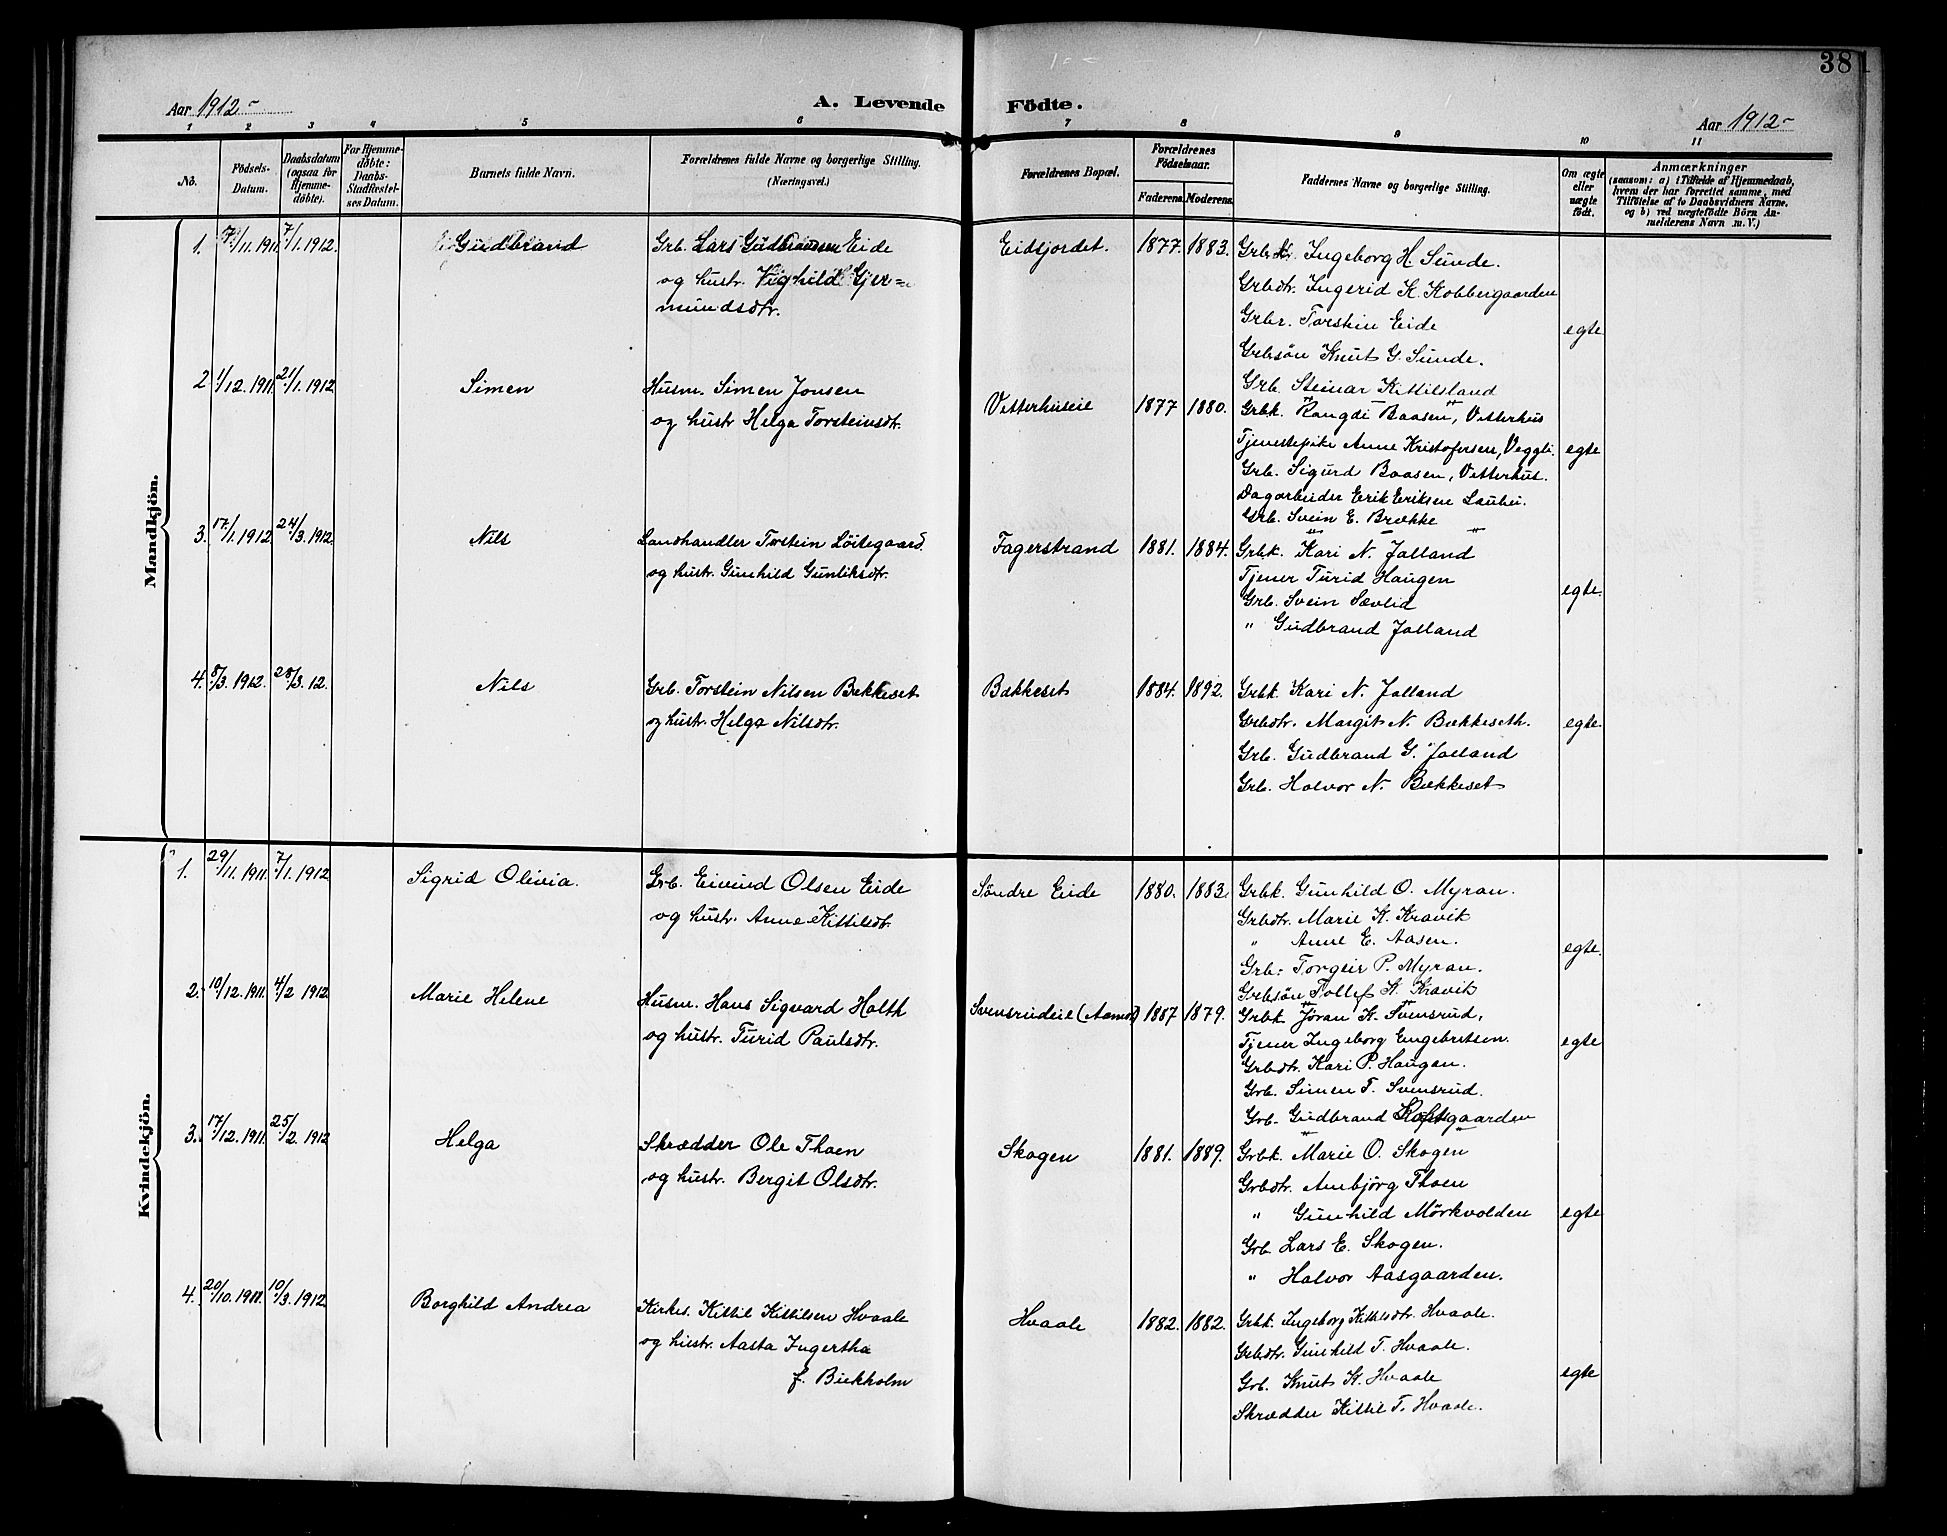 381
Aar 1912-
A. Levende Födte.
Aar 1912-
1 2 3 4 5 6 7 8 9 10 11
No.
Födsels-Datum.
Daabsdatum (ogsaa for Hjemme-döbte).
For Hjemme-döbte: Daabs-Stadfæstel-ses Datum.
Barnets fulde Navn.
Forældrenes fulde Navne og borgerlige Stilling. (Næringsvei.)
Forældrenes Bopæl.
Forældrenes Födselsaar.
Faderens. Moderens.
Faddernes Navne og borgerlige Stilling.
Om ægte eller uægte födt.
Anmærkninger
(saasom: a) i Tilfælde af Hjemmedaab,
hvem der har forrettet samme, med
Tilföielse af to Daabsvidners Navne,
og b) ved uægtefödte Börn An-
melderens Navn m. V.)
Mandkjön.
1. /11. 1911. 7/1. 1912. Gudbrand
Grb. Lars Gudbrandsen Eide
og hustr. Vighild Gjer=
mundsdtr.
Eidsfjordet. 1877. 1883.
Ingeborg H. Sunde.
Grbdtr. Ingerid K. Kobbergaarden
Grbr. Torstein Eide
Grbsön Knut G. Sunde.
Grb. Steinar Kittilsland
egte
2 1/12. 1911. 21/1. 1912 Simen
Husm. Simen Jonsen
og hustr Helga Torsteinsdtr.
Vetterhuseie 1877 1880.
Grbk. Rangdi Baasen, Vetterhus
Tjenestepike Anne Kristofersen, Veggli.
Grb. Sigurd Baasen, Vetterhus.
Dagarbeider Erik Eriksen Lauhei.
Grb. Svein E. Brække
egte
3. 17/1. 1912 24/3. 1912. Nils
Landhandler Torstein Löitegaard.
og hustr. Gunhild Gunliksdtr.
Fagerstrand 1881. 1884.
Grbk. Kari N. Jalland
Tjener Turid Haugen
Grb. Svein Sævlid
" Gudbrand Jalland
egte.
4. 8/3. 1912. 28/3. 12. Nils
Grb. Torstein Nilsen Bækkeset
og hustr. Helga Nilsdtr.
Bækkeset 1884. 1892.
Grbk. Kari N. Jalland
Grbdtr. Margit N. Bækkeseth.
Grb. Gudbrand G. Jalland
Grb. Halvor N. Bækkeset
egte.
Kvindekjön.
1. 29/11. 1911. 7/1. 1912 Sigrid Olivia.
Grb. Eivind Olsen Eide
og hustr. Anne Kittilsdtr.
Söndre Eide 1880. 1883.
Grbk. Gunhild O. Myran.
Grbdtr. Marie K. Kravik
" Anne E. Aasen.
Grb. Torgeir P. Myran.
Grbsön Tollef K. Kravik
egte.
2. 10/12. 1911. 4/2 1912 Marie Helene
Husm. Hans Sigvard Holth
og hustr. Turid Paulsdtr.
Svensrudeie (Aamot) 1887 1879.
Grbk. Jöran K. Svensrud,
Tjener Ingeborg Engebretsen.
Grbdtr. Kari P. Haugan.
Grb. Simen T. Svensrud.
Grb. Gudbrand
egte
3. 17/12. 1911. 25/2. 1912 Helga
Skrædder Ole Thoen
og hustr. Bergit Olsdtr.
Skogen 1881. 1889.
Grbk. Marie O. Skogen
Grbdtr. Ambjörg Thoen
" Gunhild Mörkvolden
Grb. Lars E. Skogen.
" Halvor Aasgaarden.
egte
4. 20/10. 1911. 10/3. 1912 Borghild Andrea
Kirkes. Kittil Kittilsen Hvaale
og hustr. Aasta Ingertha
f. Biekholm
Hvaale 1882. 1882.
Grbk. Ingeborg Kittilsdtr. Hvaale.
Grbdtr. Gunhild T. Hvaale.
Grb. Knut K. Hvaale
Skrædder Kittil T. Hvaale.
egte